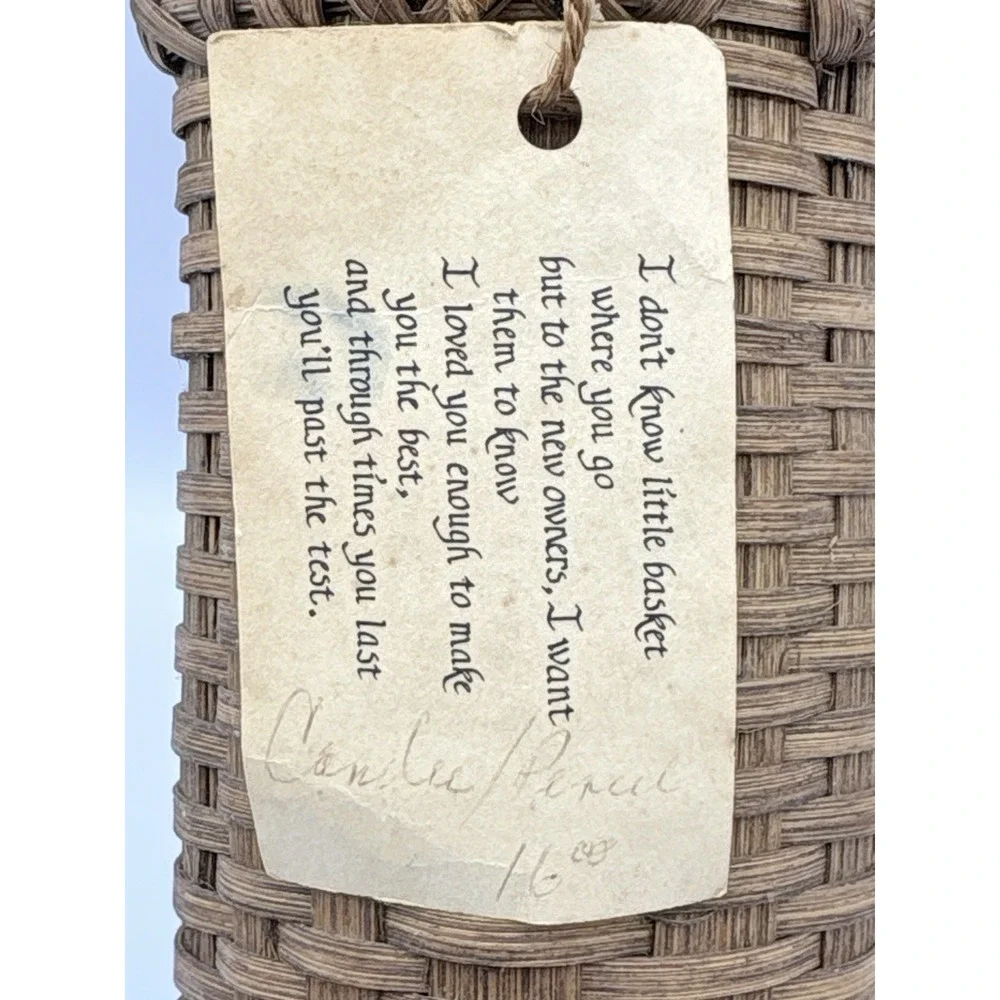 I don't know little basket
where you go
but to the new owners, I want
them to know
I loved you enough to make
you the best,
and through times you last
you'll past the test.
Candle/Pencil
16⁰⁰